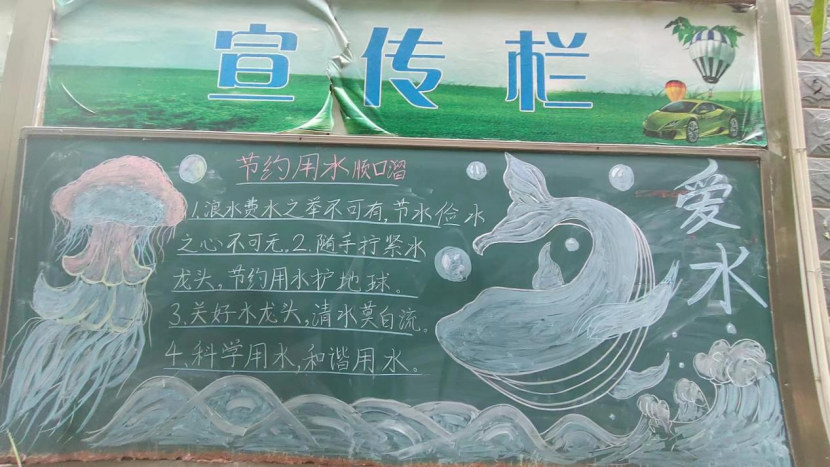 宣传栏
节约用水顺口溜
1.浪水费水之举不可有,节水俭水
之心不可无.2.随手拧紧水
龙头,节约用水护地球。
3.关好水龙头,清水莫白流。
4.科学用水,和谐用水。
爱水